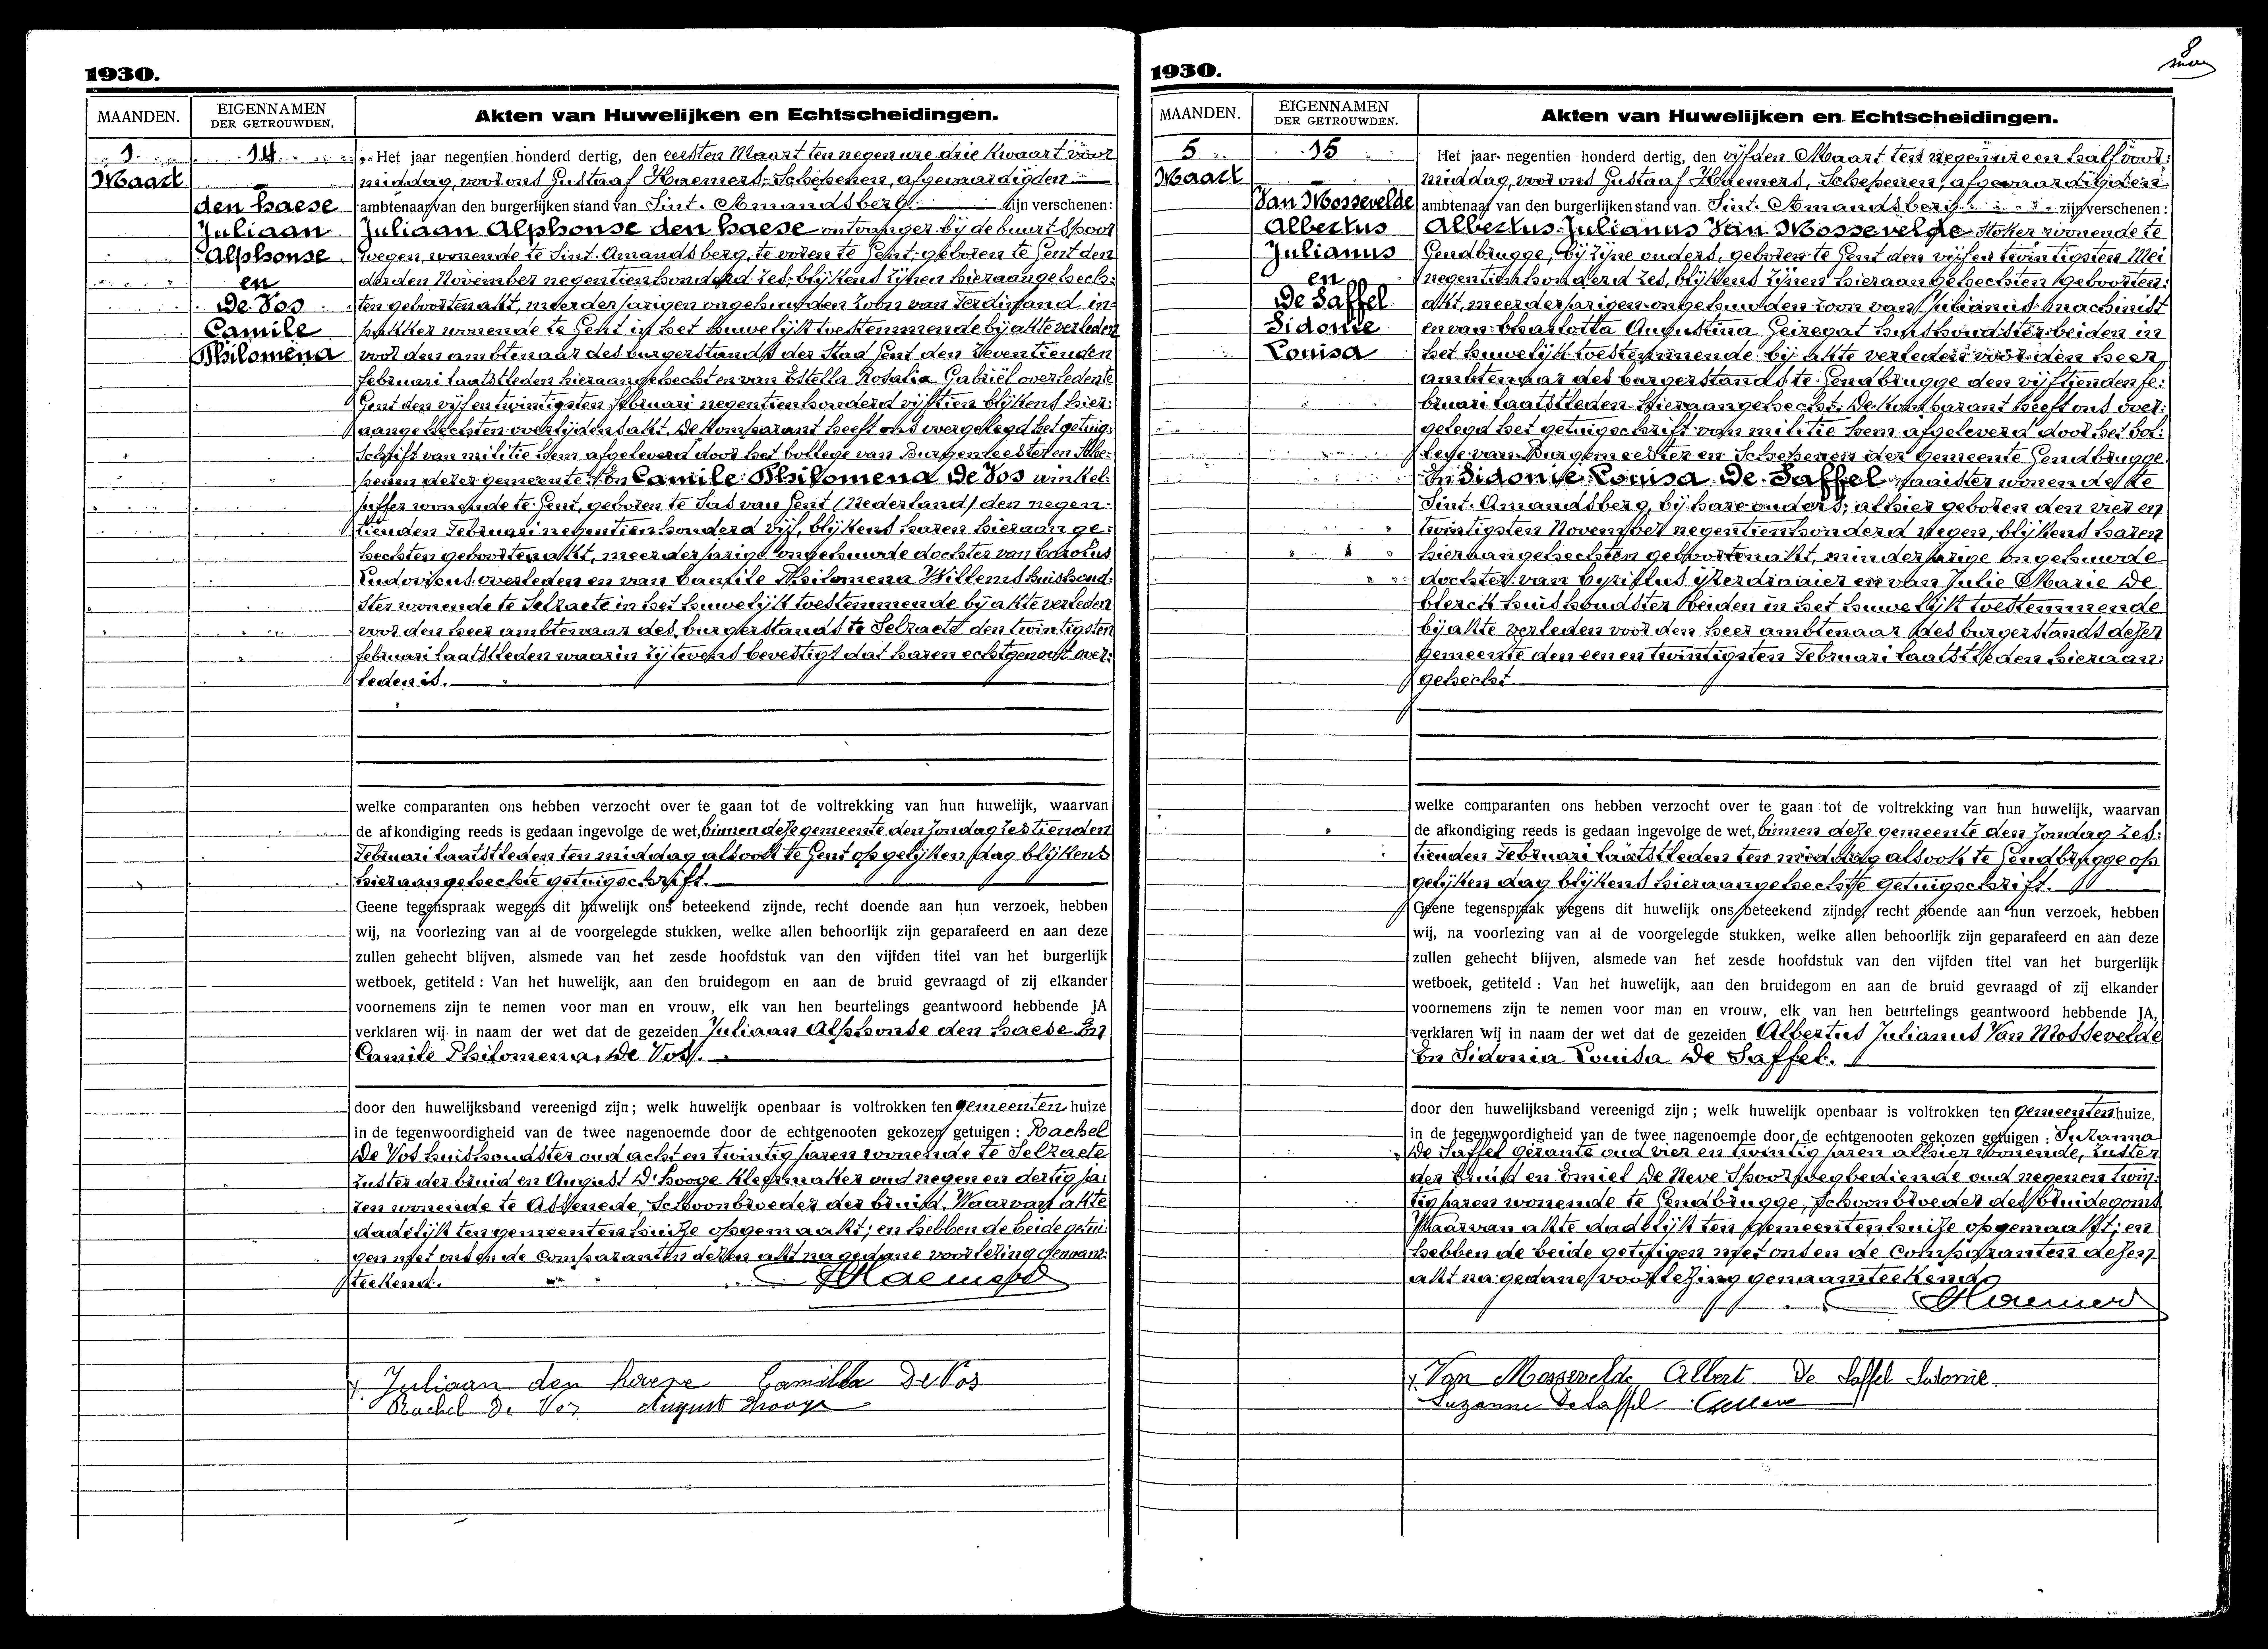 1930.
MAANDEN.
EIGENNAMEN
DER GETROUWDEN,
Akten van Huwelijken en Echtscheidingen.
1
Maart
14
den haese
Juliaan
Alphonse
en
De Vos
Camile
Philomena
Het jaar negentien honderd dertig, den eersten Maart ten negen ure drie kwaart voor
middag, voor ons Gustaaf Haemers, Schepenen, afgevaardigden
ambtenaar van den burgerlijken stand van Sint-Amandsberg zijn verschenen:
Juliaan Alphonse den haese ontvanger bij de buurtspoor
wegen, wonende te Sint-Amandsberg, te voren te Gent, geboren te Gent den
derden November negentienhonderd zes, blijkens zijnen hieraangehech-
ten geboortenakt, meerderjarigen ongehuwden zoon van Ferdinand in-
pakker wonende te Gent in het huwelijk toestemmende bij akte verleden
voor den ambtenaar des burgerstands der Stad Gent den zeventienden
februari laatstleden hieraangehecht en van Estella Rosalia Gabriël overleden te
Gent den vijf en twintigsten februari negentienhonderd vijftien blijkens hier-
aangehechten overlijdensakt. De komparant heeft ons overgelegd het getuig-
schrift van militie hem afgeleverd door het College van Burgemeester en Sche-
penen dezer gemeente. En Camile Philomena De Vos winkel-
juffer wonende te Gent, geboren te Sas van Gent (Nederland) den negen-
tienden Februari negentienhonderd vijf, blijkens haren hieraange-
hechten geboortenakt, meerderjarige ongehuwde dochter van Carolus
Ludovicus overleden en van Camile Philomena Willems huishoud-
ster wonende te Selzaete in het huwelijk toestemmende bij akte verleden
voor den heer ambtenaar des burgerstands te Selzaete den twintigsten
februari laatstleden waarin zij tevens bevestigt dat haren echtgenoot over-
leden is.
welke comparanten ons hebben verzocht over te gaan tot de voltrekking van hun huwelijk, waarvan
de afkondiging reeds is gedaan ingevolge de wet, binnen deze gemeente den Zondag zestienden
Februari laatstleden ten middag alsook te Gent op gelijken dag blijkens
hieraangehechte getuigschrift.
Geene tegenspraak wegens dit huwelijk ons beteekend zijnde, recht doende aan hun verzoek, hebben
wij, na voorlezing van al de voorgelegde stukken, welke allen behoorlijk zijn geparafeerd en aan deze
zullen gehecht blijven, alsmede van het zesde hoofdstuk van den vijfden titel van het burgerlijk
wetboek, getiteld : Van het huwelijk, aan den bruidegom en aan de bruid gevraagd of zij elkander
voornemens zijn te nemen voor man en vrouw, elk van hen beurtelings geantwoord hebbende JA
verklaren wij in naam der wet dat de gezeiden Juliaan Alphonse den haese En
Camile Philomena De Vos.
door den huwelijksband vereenigd zijn; welk huwelijk openbaar is voltrokken ten gemeenten huize
in de tegenwoordigheid van de twee nagenoemde door de echtgenooten gekozen getuigen : Rachel
De Vos huishoudster oud acht en twintig jaren wonende te Selzaete
zuster der bruid en August D'hooge kleermaker oud negen en dertig ja-
ren wonende te Assenede, Schoonbroeder der bruid. Waarvan akte
dadelijk ten gemeentenhuize opgemaakt; en hebben de beide getui-
gen met ons en de comparanten dezen akt na gedane voorlezing genaam-
teekend. Haemers
Juliaan den haese Camilla De Vos
Rachel De Vos August Dhooge
1930.
8
MAANDEN.
EIGENNAMEN
DER GETROUWDEN.
Akten van Huwelijken en Echtscheidingen.
5
Maart
15
Van Mossevelde
Albertus
Julianus
en
De Saffel
Sidonie
Louisa
Het jaar negentien honderd dertig, den vijfden Maart ten negen ure en half voor-
middag, voor ons Gustaaf Haemers, Schepenen, afgevaardigden
ambtenaar van den burgerlijken stand van Sint-Amandsberg zijn verschenen :
Albertus Julianus Van Mossevelde Stoker wonende te
Gendbrugge, bij zijne ouders, geboren te Gent den vijf en twintigsten Mei
negentienhonderd zes, blijkens zijnen hieraangehechten geboorten-
akt, meerderjarigen ongehuwden zoon van Julianus machinist
en van Charlotta Augustina Geiregat huishoudster beiden in
het huwelijk toestemmende bij akte verleden voor den heer
ambtenaar des burgerstands te Gendbrugge den vijftienden fe-
bruari laatstleden hieraangehecht. De komparant heeft ons over-
gelegd het getuigschrift van militie hem afgeleverd door het Col-
lege van Burgemeester en Schepenen der gemeente Gendbrugge.
En Sidonie Louisa De Saffel naaister wonende te
Sint-Amandsberg, bij hare ouders; alhier geboren den vier en
twintigsten November negentienhonderd negen, blijkens haren
hieraangehechten geboortenakt, minderjarige ongehuwde
dochter van Cyrillus ijzerdraaier en van Julie Marie De
Clerck huishoudster beiden in het huwelijk toestemmende
bij akte verleden voor den heer ambtenaar des burgerstands dezer
Gemeente den een en twintigsten Februari laatstleden hieraan-
gehecht.
welke comparanten ons hebben verzocht over te gaan tot de voltrekking van hun huwelijk, waarvan
de afkondiging reeds is gedaan ingevolge de wet, binnen deze gemeente den Zondag zes-
tienden Februari laatstleden ten middag alsook te Gendbrugge op
gelijken dag blijkens hieraangehechte getuigschrift.
Geene tegenspraak wegens dit huwelijk ons beteekend zijnde, recht doende aan hun verzoek, hebben
wij, na voorlezing van al de voorgelegde stukken, welke allen behoorlijk zijn geparafeerd en aan deze
zullen gehecht blijven, alsmede van het zesde hoofdstuk van den vijfden titel van het burgerlijk
wetboek, getiteld : Van het huwelijk, aan den bruidegom en aan de bruid gevraagd of zij elkander
voornemens zijn te nemen voor man en vrouw, elk van hen beurtelings geantwoord hebbende JA,
verklaren wij in naam der wet dat de gezeiden Albertus Julianus Van Mossevelde
En Sidonia Louisa De Saffel.
door den huwelijksband vereenigd zijn; welk huwelijk openbaar is voltrokken ten gemeentenhuize,
in de tegenwoordigheid van de twee nagenoemde door de echtgenooten gekozen getuigen : Suzanna
De Saffel gérante oud vier en twintig jaren alhier wonende, zuster
der bruid en Emiel De Neve Spoorwegbediende oud negen en twin-
tig jaren wonende te Gendbrugge, Schoonbroeder des bruidegoms
Waarvan akte dadelijk ten gemeentenhuize opgemaakt; en
hebben de beide getuigen met ons en de comparanten dezen
akt na gedane voorlezing genaamteekend
Haemers
Van Mossevelde Albert De Saffel Sidonie
Suzanne De Saffel